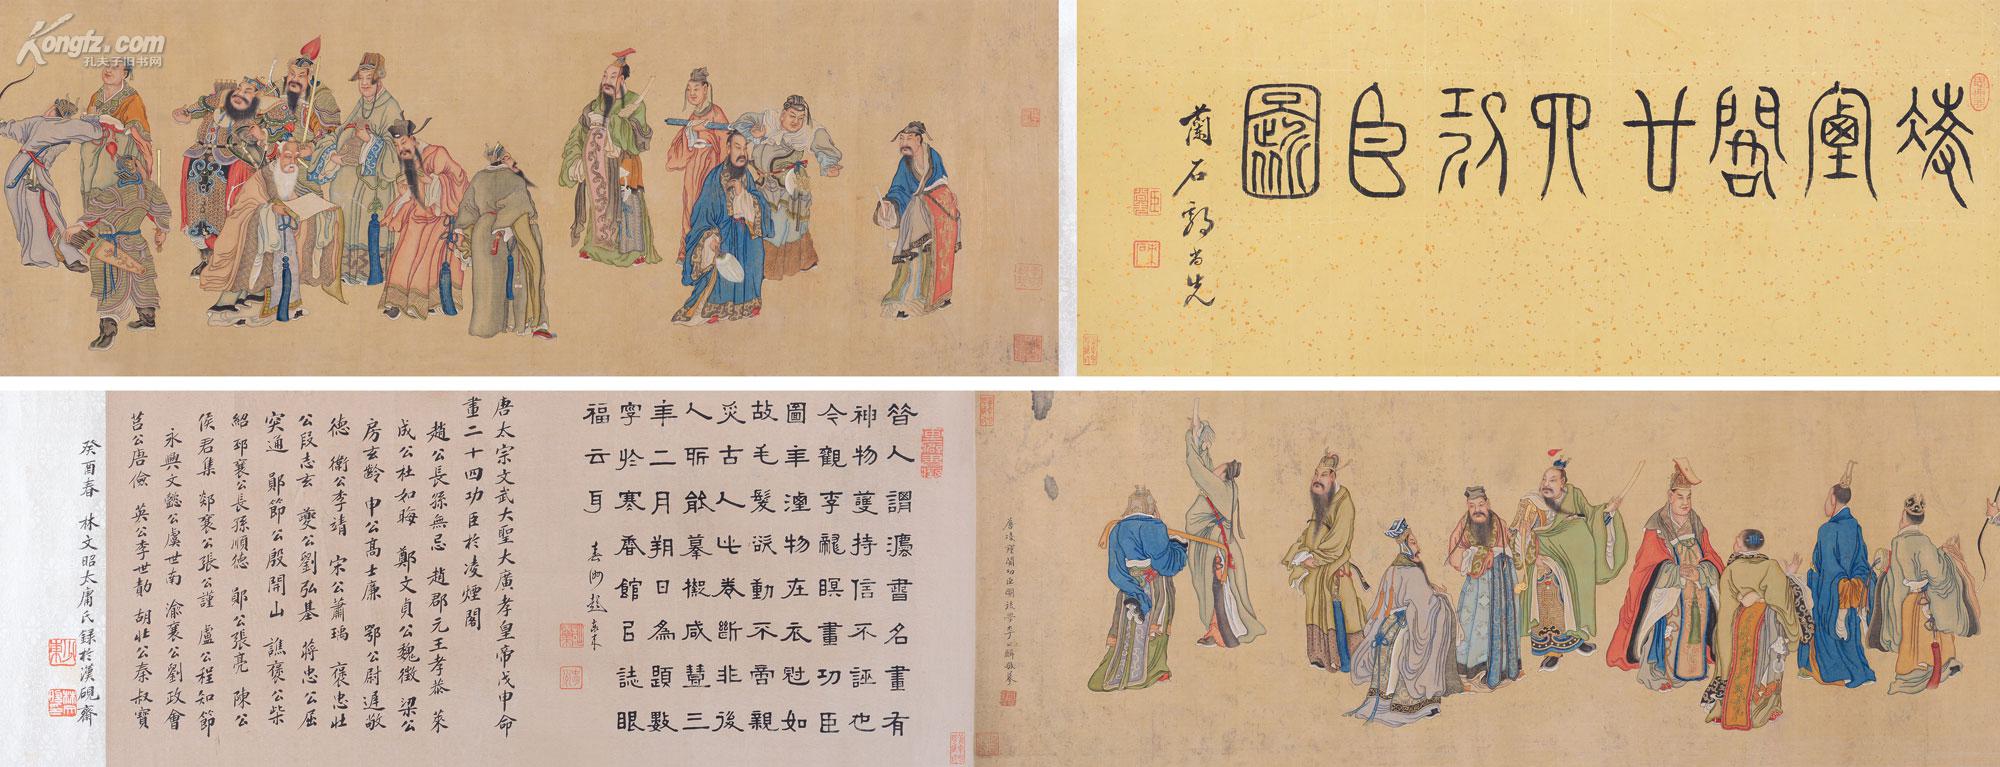 Kongfz.com
孔夫子旧书网
凌煙閣廿四功臣圖
蘭石郭尚先
唐凌煙閣功臣圖 李公麟敬摹
昔人謂灋書名畫有
神物護持信不誣也
今觀李龍瞑畫功臣
圖年湮物在衣冠如
故毛髮欲動不啻親
炙古人此卷斷非後
人所能摹擬咸豐三
年二月朔日為題數
字於寒香館以誌眼
福云耳 春洲趙
唐太宗文武大聖大廣孝皇帝戊申命
畫二十四功臣於凌煙閣
趙公長孫無忌 趙郡元王孝恭 萊
成公杜如晦 鄭文貞公魏徵 梁公
房玄齡 申公高士廉 鄂公尉遲敬
德 衛公李靖 宋公蕭瑀 褒忠壯
公段志玄 夔公劉弘基 蔣忠公屈
突通 鄖節公殷開山 譙襄公柴
紹 邳襄公長孫順德 鄖公張亮 陳公
侯君集 郯襄公張公謹 盧公程知節
永興文懿公虞世南 渝襄公劉政會
莒公唐儉 英公李世勣 胡壯公秦叔寶
癸酉春 林文昭太庸氏錄於漢硯齋